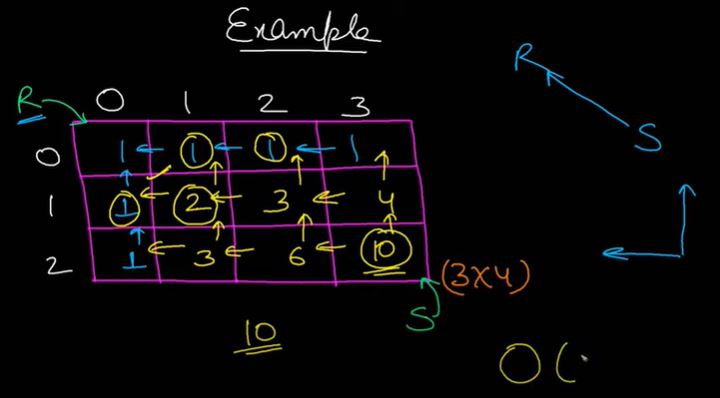 Example
R
R 0 1 2 3
0 1 1 1 1
S
1 1 2 3 4
2 1 3 6 10
(3X4)
S
10
O(